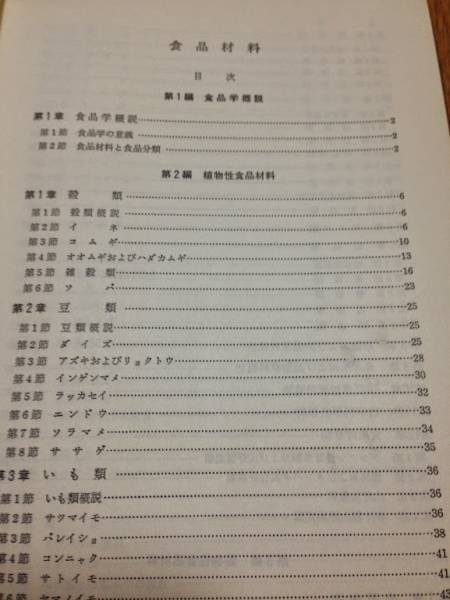 食品材料
目次
第1編 食品学概説
第1章 食品学概説……2
第1節 食品学の意義……2
第2節 食品材料と食品分類……2
第2編 植物性食品材料
第1章 穀類……6
第1節 穀類概説……6
第2節 イネ……6
第3節 コムギ……10
第4節 オオムギおよびハダカムギ……13
第5節 雑穀類……16
第6節 ソバ……23
第2章 豆類……25
第1節 豆類概説……25
第2節 ダイズ……25
第3節 アズキおよびリョクトウ……28
第4節 インゲンマメ……30
第5節 ラッカセイ……32
第6節 エンドウ……33
第7節 ソラマメ……34
第8節 ササゲ……35
第3章 いも類……36
第1節 いも類概説……36
第2節 サツマイモ……36
第3節 バレイショ……38
第4節 コンニャク……41
第5節 サトイモ……41
第6節 ヤマノイモ……43